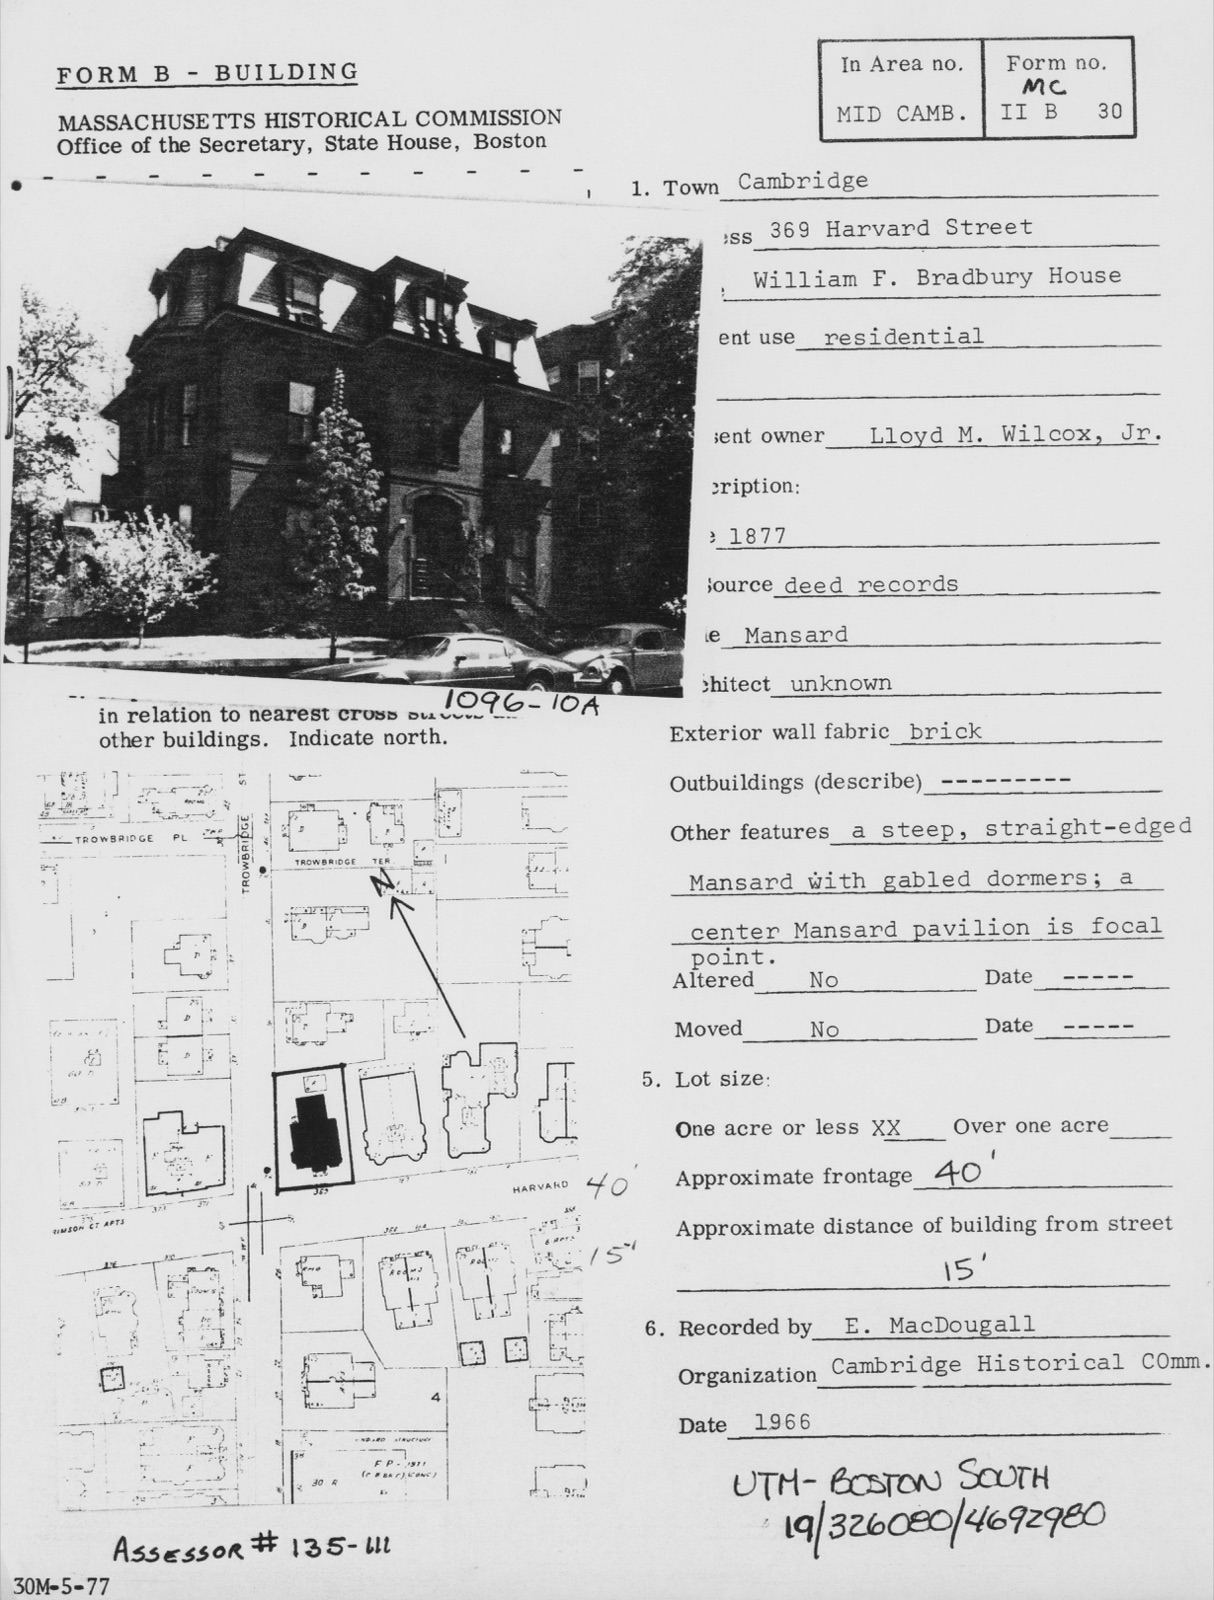 FORM B - BUILDING
MASSACHUSETTS HISTORICAL COMMISSION
Office of the Secretary, State House, Boston
In Area no.
MID CAMB.
Form no.
MC
II B 30
1. Town Cambridge
ess 369 Harvard Street
William F. Bradbury House
ent use residential
sent owner Lloyd M. Wilcox, Jr.
cription:
e 1877
Source deed records
le Mansard
chitect unknown
Exterior wall fabric brick
Outbuildings (describe) ---------
Other features a steep, straight-edged
Mansard with gabled dormers; a
center Mansard pavilion is focal
point.
Altered No Date -----
Moved No Date -----
5. Lot size:
One acre or less XX Over one acre
Approximate frontage 40'
Approximate distance of building from street
15'
6. Recorded by E. MacDougall
Organization Cambridge Historical COmm.
Date 1966
UTM- BOSTON SOUTH
19/326080/4692980
1096-10A
in relation to nearest cross streets
other buildings. Indicate north.
TROWBRIDGE PL.
TROWBRIDGE ST
TROWBRIDGE TER.
N
HARVARD
40'
15'
369
4
F P - 1911
30 R
ASSESSOR # 135-111
30M-5-77